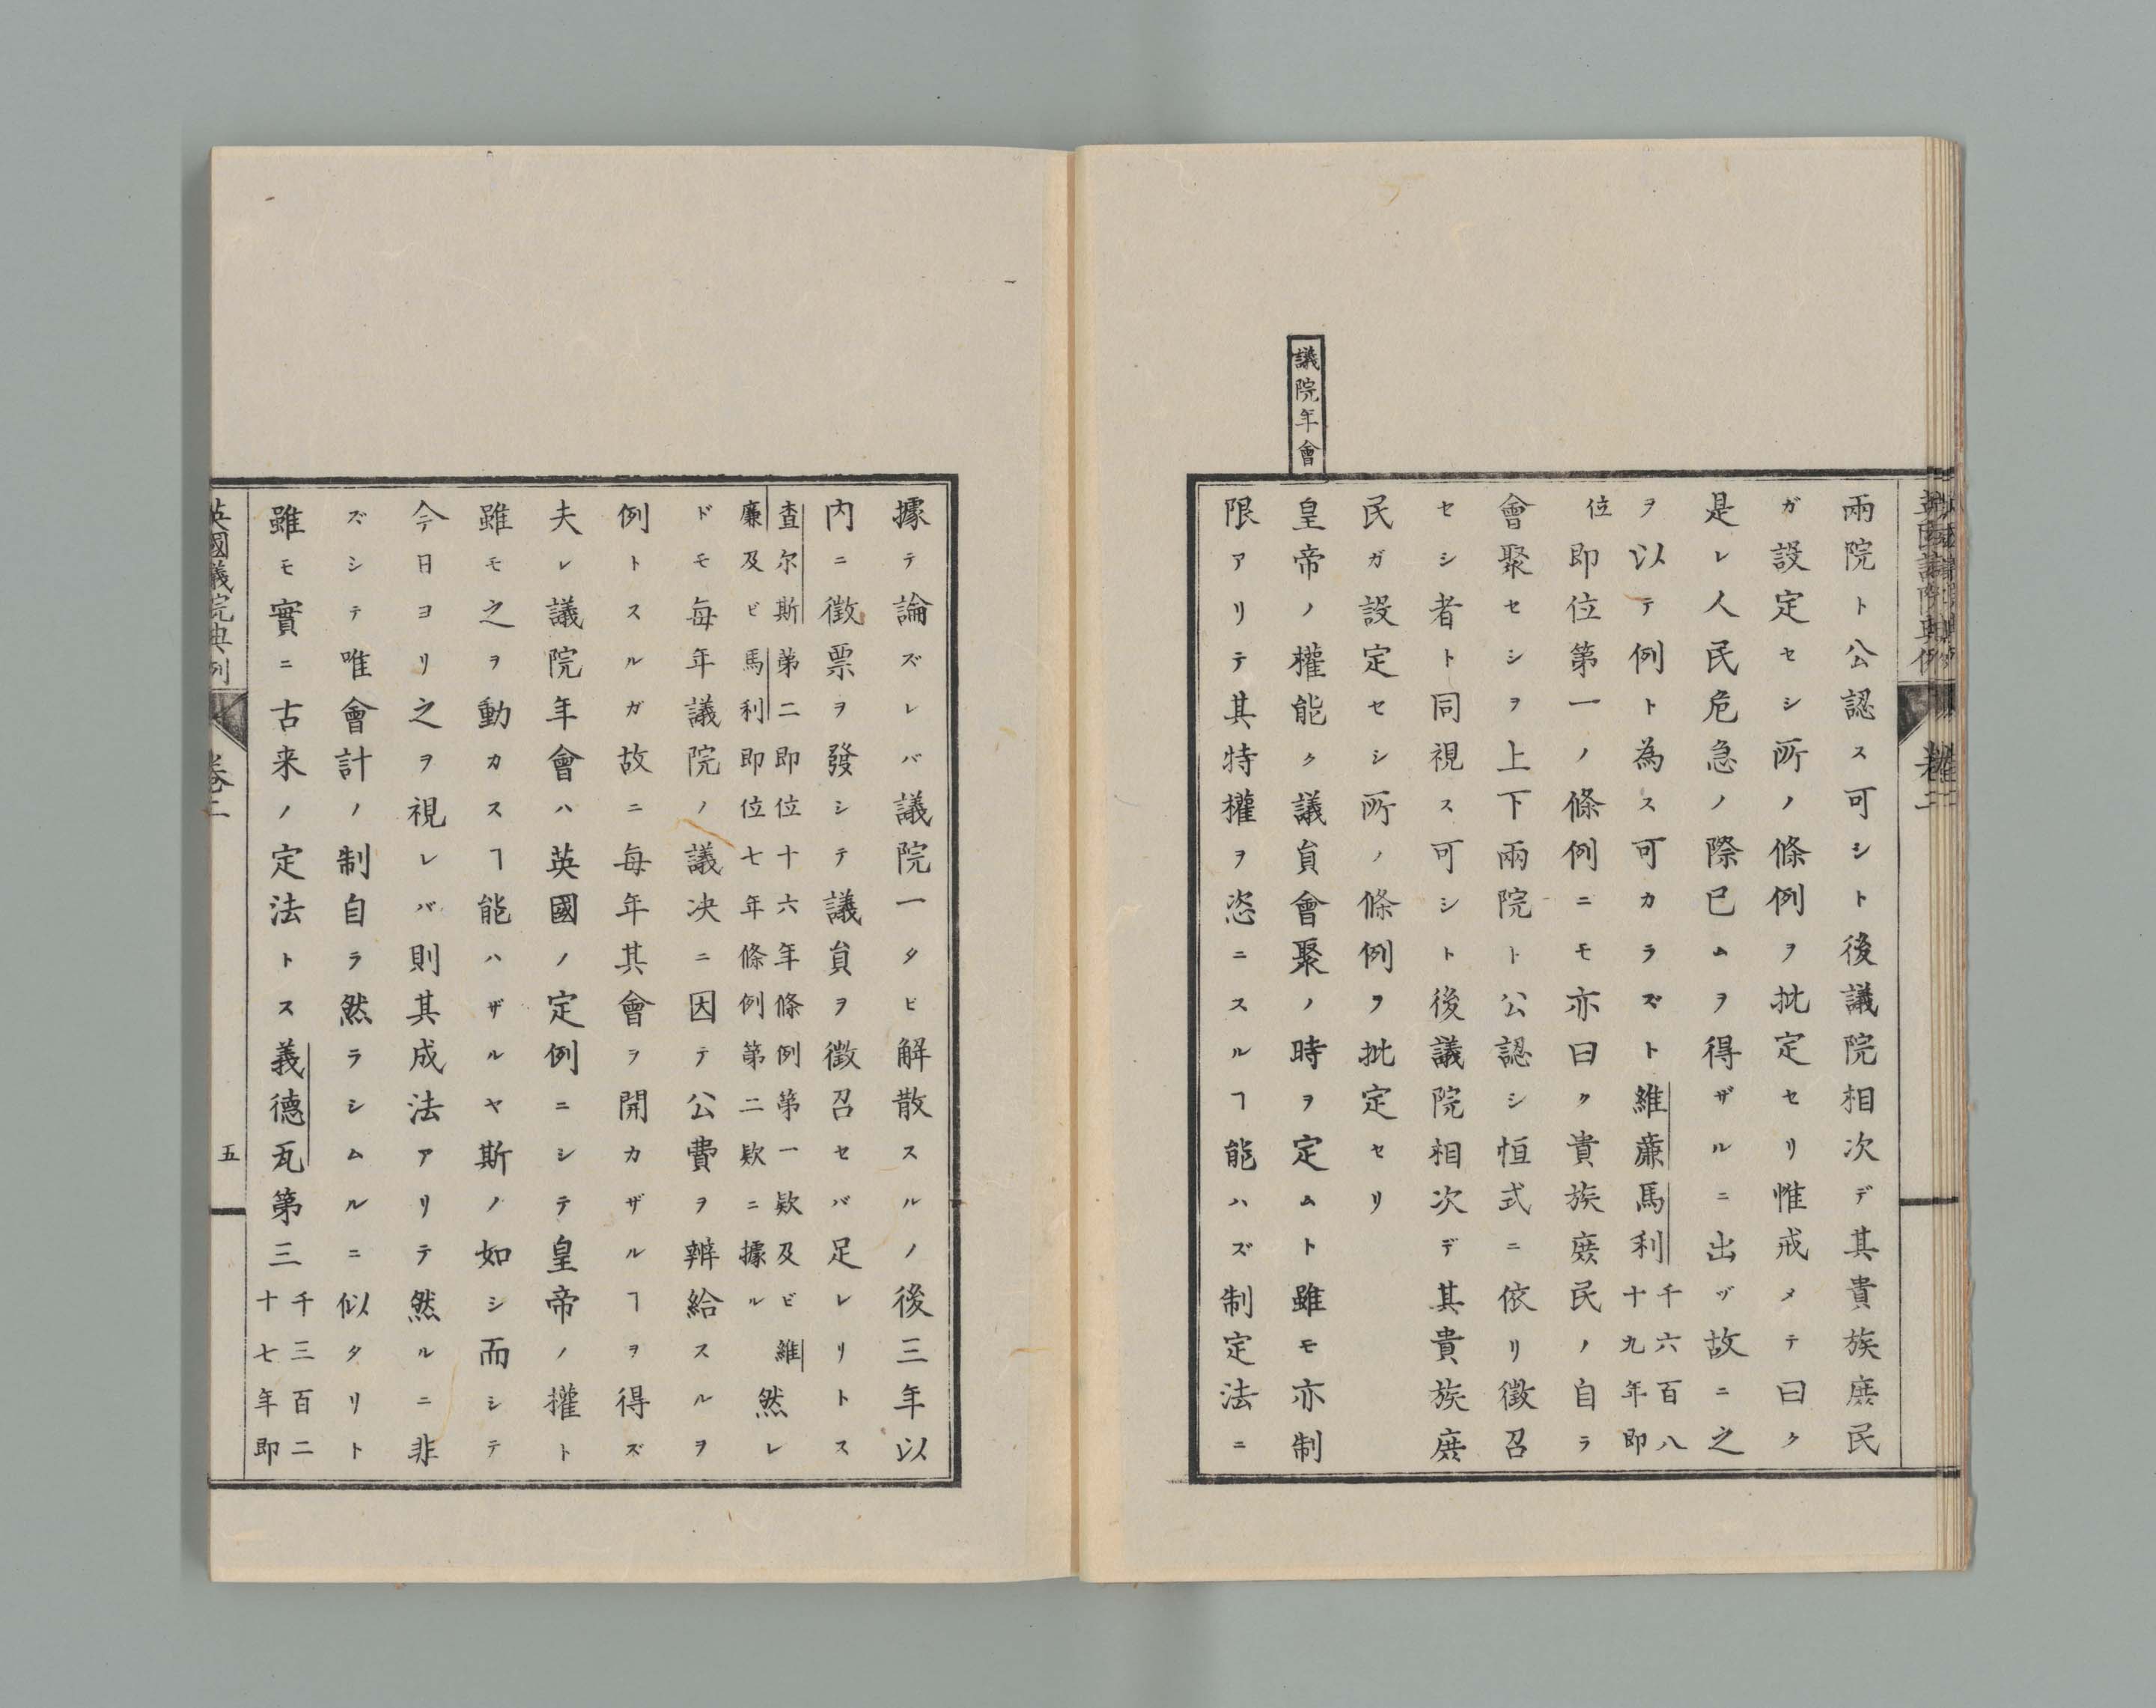 兩院ト公認ス可シト後議院相次デ其貴族庻民
ガ設定セシ所ノ條例ヲ批定セリ惟戒メテ曰ク
是レ人民危急ノ際已ムヲ得ザルニ出ヅ故ニ之
ヲ以テ例ト為ス可カラズト維廉馬利千六百八十九年即
位即位第一ノ條例ニモ亦曰ク貴族庻民ノ自ラ
會聚セシヲ上下兩院ト公認シ恒式ニ依リ徵召
セシ者ト同視ス可シト後議院相次デ其貴族庻
民ガ設定セシ所ノ條例ヲ批定セリ
議院年會
皇帝ノ權能ク議員會聚ノ時ヲ定ムト雖モ亦制
限アリテ其特權ヲ恣ニスルヿ能ハズ制定法ニ
據テ論ズレバ議院一タビ解散スルノ後三年以
内ニ徵票ヲ發シテ議員ヲ徵召セバ足レリトス
査尔斯第二即位十六年條例第一欵及ビ維
廉及ビ馬利即位七年條例第二欵ニ據ル然レ
ドモ每年議院ノ議决ニ因テ公費ヲ辨給スルヲ
例トスルガ故ニ每年其會ヲ開カザルヿヲ得ズ
夫レ議院年會ハ英國ノ定例ニシテ皇帝ノ權ト
雖モ之ヲ動カスヿ能ハザルヤ斯ノ如シ而シテ
今日ヨリ之ヲ視レバ則其成法アリテ然ルニ非
ズシテ唯會計ノ制自ラ然ラシムルニ似タリト
雖モ實ニ古来ノ定法トス義德瓦第三千三百二十七年即
英國議院典例
卷二
五